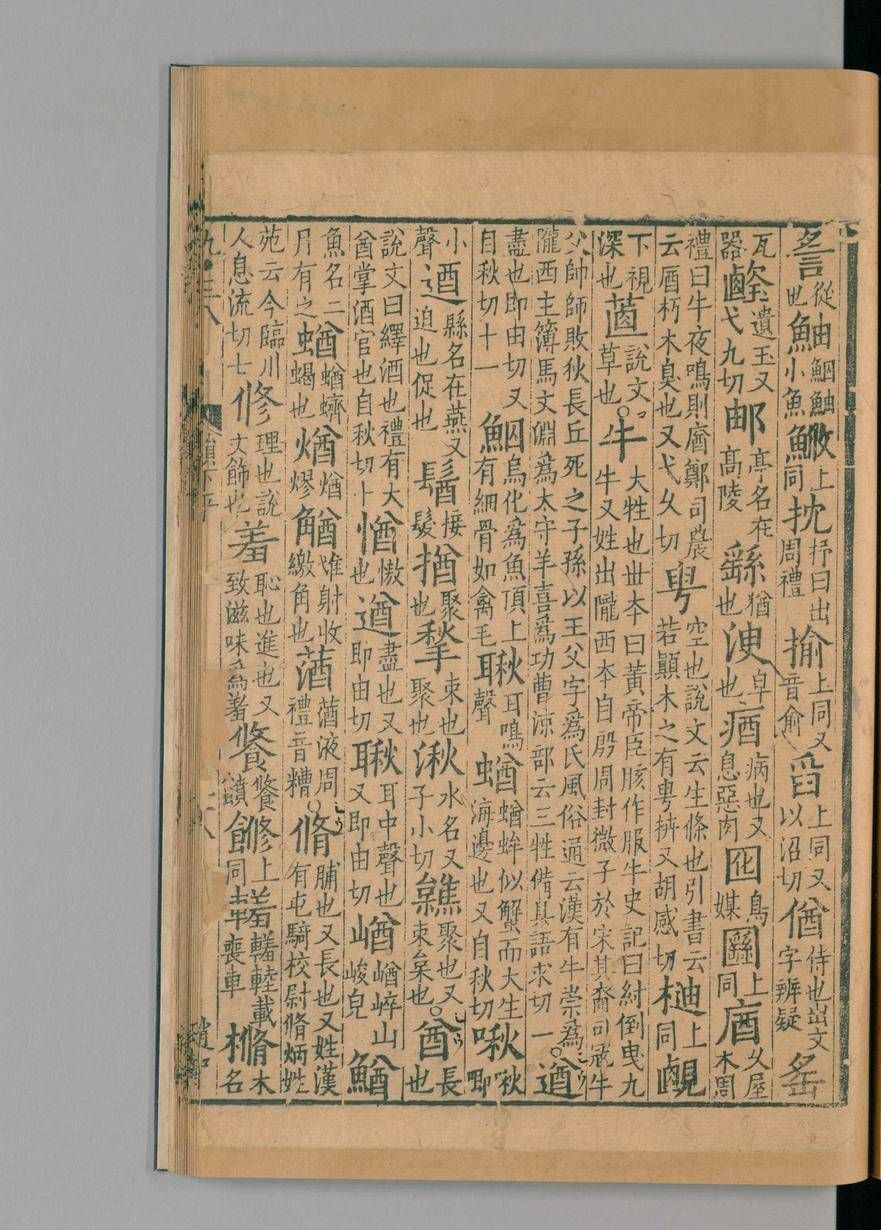 䚻從也鮋䲃上同抌抒臼出周禮揄上同又音俞舀上同又以沼切偤侍也出文字辨疑䍃
瓦器遺玉又弋九切邮亭名在高陵繇猶也臭也病也又息惡肉囮鳥媒上同庮久屋木周
禮曰牛夜鳴則庮鄭司農云庮朽木臭也又弋久切甹空也說文云生條也引書云若顛木之有甹枿又胡感切上同
下視深也說文曰草也○牛大牲也世本曰黃帝臣胲作服牛史記曰紂倒曳九牛又姓出隴西本自殷周封微子於宋其裔司寇牛
父帥師敗狄長丘死之子孫以王父字爲氏風俗通云漢有牛崇爲隴西主簿馬文淵爲太守羊喜爲功曹涼部云三牲備具語求切一○遒
盡也即由切又自秋切十一烏化爲魚頂上有細骨如禽毛耳鳴聲蝤蝤蛑似蟹而大生海邊也又自秋切啾啾唧
小聲遒縣名在燕又迫也促也接髮揂聚也揫束也聚也湫水名又子小切聚也又束枲也○酋長也
說文曰繹酒也禮有大酋掌酒官也自秋切十慠也遒盡也又即由切耳中聲也又即由切崷崷崪山峻皃鰌
魚名二月有之蝤蝤蠐蝎也煪煪熮雉射收繳角也液周禮音糟○脩脯也又長也又姓漢有屯騎校尉脩炳姓
苑云今臨川人息流切七修理也說文飾也羞恥也進也又致滋味爲羞上同載喪車樇木名